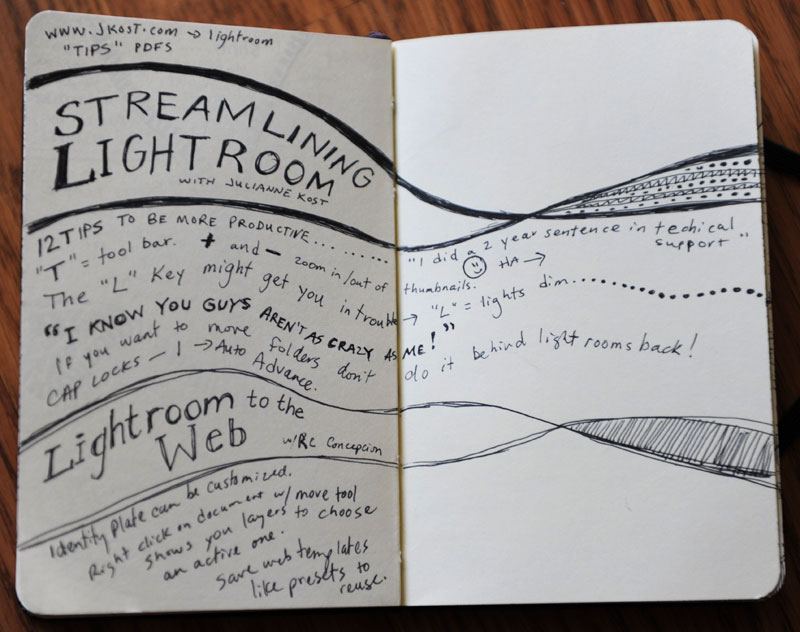 www.JKost.com → lightroom
"TIPS" PDFS
STREAMLINING
LIGHTROOM
WITH JULIANNE KOST
12 TIPS TO BE MORE PRODUCTIVE..........
"T" = tool bar. + and - zoom in/out of thumbnails.
"I did a 2 year sentence in techical
support"
HA →
The "L" Key might get you in trouble → "L" = lights dim............
"I KNOW YOU GUYS AREN'T AS CRAZY AS ME!"
If you want to move folders don't do it behind lightrooms back!
CAP LOCKS - 1 → Auto Advance.
Lightroom to the
Web
w/RC Concepcion
Identity Plate can be customized.
Right click on document w/ move tool
shows you layers to choose
an active one.
Save web templates
like presets to
reuse.